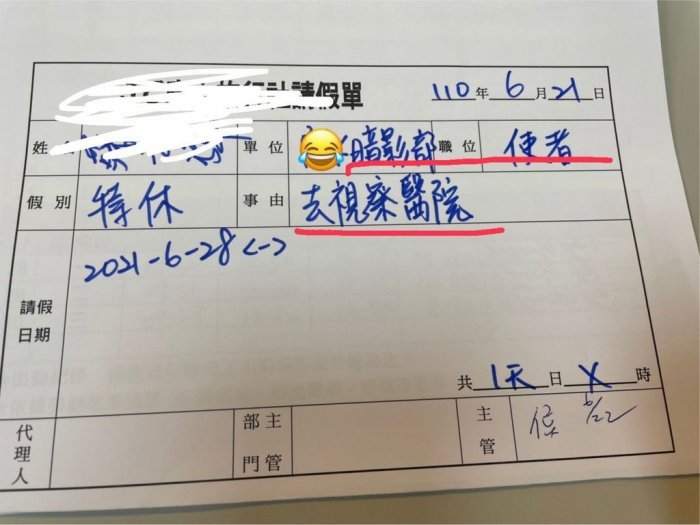 請假單 110年6月21日
姓 單位 暗影部 職位 使者
假別 特休 事由 去視察醫院
請假日期 2021-6-28<一>
共1天日X時
代理人 部門主管 主管 6/22